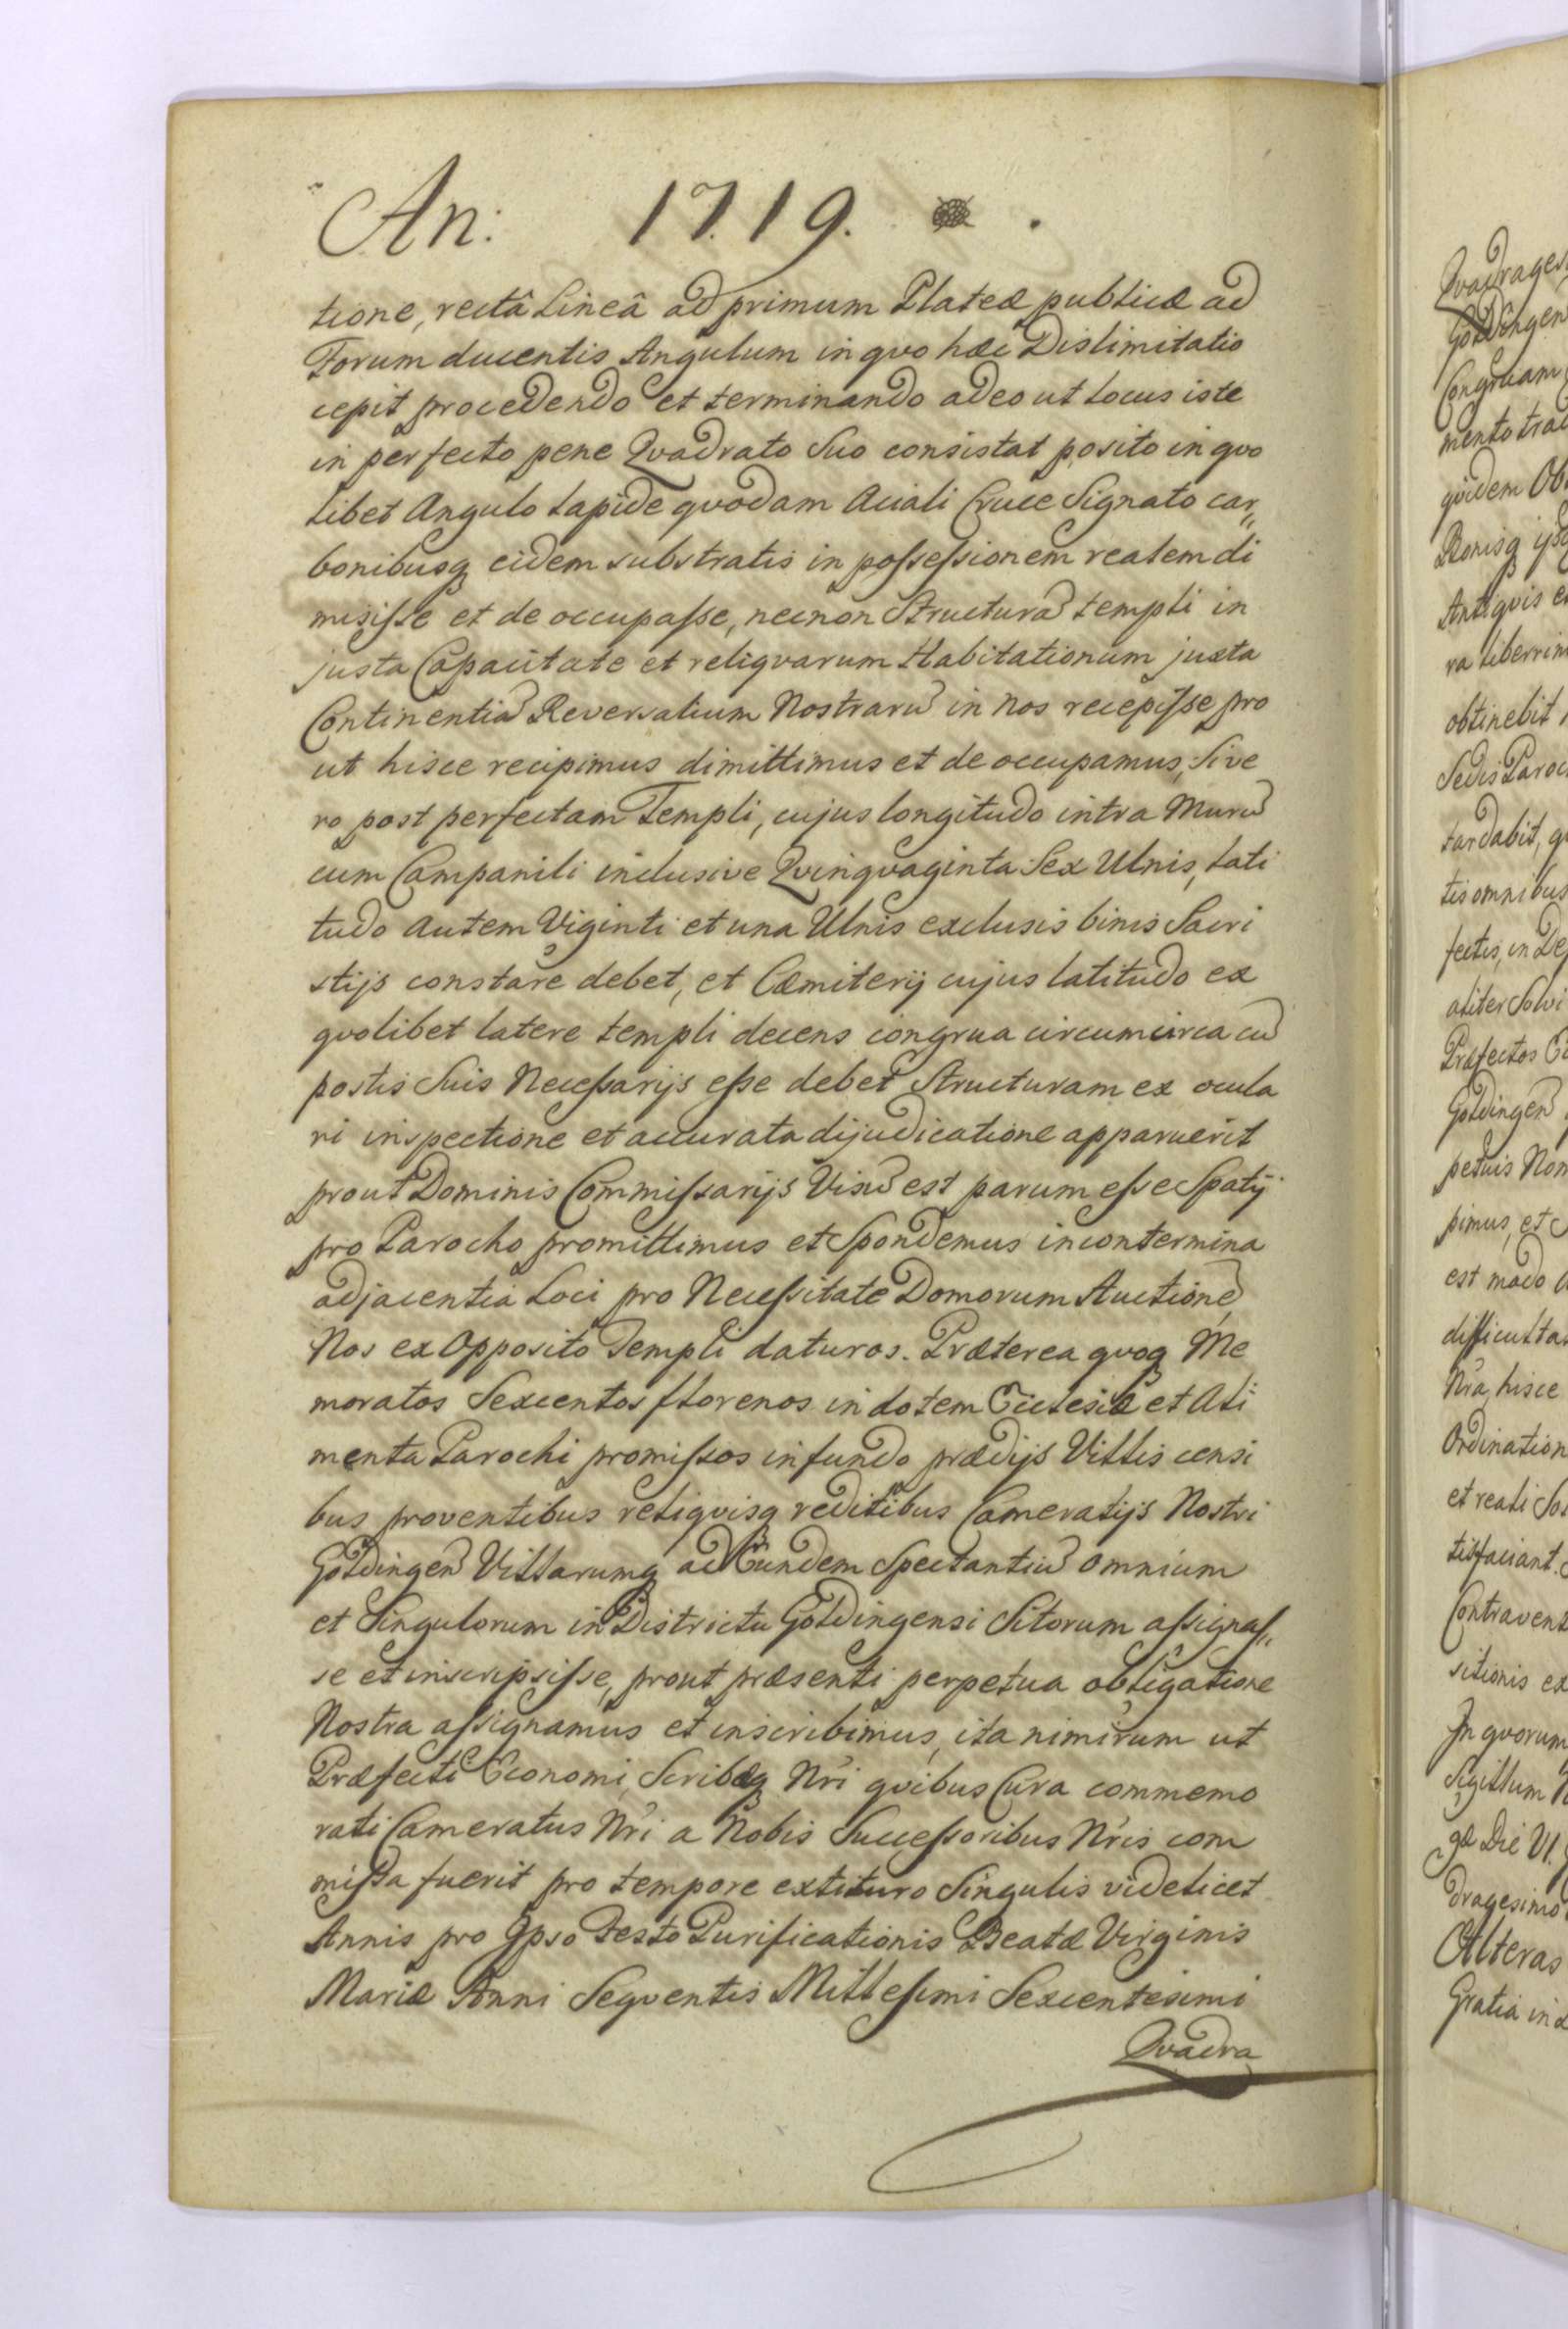 An: 1719.
tione, rectâ Lineâ ad primum Plateæ publicæ ad
Forum ducentis Angulum in qvo hæc Dislimitatio
cepit procedendo et terminando adeo ut Locus iste
in perfecto pene Qvadrato Suo consistat posito in qvo
libet Angulo Lapide qvodam Aciali Cruce Signato car„
bonibusq eidem substratis in poſseſsionem realem di
misiſse et de occupaſse, necnon Structurā templi in
justa Capacitate et reliqvarum Habitationum juxta
Continentiā Reversalium Nostrarū in Nos recepiſse pro
ut hisce recipimus dimittimus et de occupamus, Sive
ro post perfectam Templi, cujus longitudo intra Murū
cum Campanili inclusive Qvinqvaginta Sex Ulnis, Lati
tudo Autem Viginti et una Ulnis exclusis binis Sacri
stijs constare debet, et Cæmiterij cujus latitudo ex
qvolibet latere templi decens congrua circumcirca cū
postis Suis Neceſsarijs eſse debet Structuram ex ocula
ri inspectione et accurata dijudicatione apparuerit
prout Dominis Commiſsarijs Visū est parum eſse Spatij
pro Parocho promittimus et Spondemus incontermina
adjacentia Loci pro Neceſsitate Domorum Auctionē
Nos ex Opposito Templi daturos. Præterea qvoq Me
moratos Sexcentos florenos in dotem Ecclesiæ et Ali
menta Parochi promiſsos in fundo prædijs Villis censi
bus proventibus reliqvisq reditibus Cameratijs Nostri
Goldingen Villarumq ad Eundem Spectantiū omnium
et Singulorum in Districtu Goldingensi Sitorum aſsignaſ„
se et inscripsiſse, prout præsenti perpetua obligatione
Nostra aſsignamus et inscribimus, ita nimirum ut
Præfecti Œconomi, Scribæq Nri qvibus Cura commemo
rati Cameratus Nri a Nobis Succeſsoribus Nris com
miſsa fuerit pro tempore extituro Singulis videlicet
Annis pro Ipso Festo Purificationis Beatæ Virginis
Mariæ Anni Seqventis Milleſimi Sexcentesimi
Qvadra
Congruam
mento
qvidem
Antiqvis
obtinebit
Sedis
tardabit,
tis omnibus
aliter Solvi
Præfectos
Goldingen
petuis
pimus, et
est modo
Nra, hisce
et reali
tisfaciant.
sitionis ex
In qvorum
Sigillum
dragesimo
Alteras
Gratia in